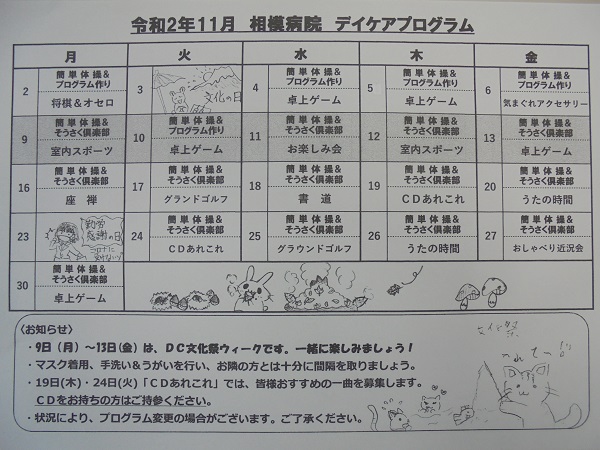 令和2年11月 相模病院 デイケアプログラム
月 火 水 木 金
2 簡単体操&プログラム作り 将棋&オセロ
3 文化の日
4 簡単体操&プログラム作り 卓上ゲーム
5 簡単体操&プログラム作り 卓上ゲーム
6 簡単体操&プログラム作り 気まぐれアクセサリー
9 簡単体操&そうさく倶楽部 室内スポーツ
10 簡単体操&プログラム作り 卓上ゲーム
11 簡単体操&そうさく倶楽部 お楽しみ会
12 簡単体操&そうさく倶楽部 室内スポーツ
13 簡単体操&そうさく倶楽部 卓上ゲーム
16 簡単体操&そうさく倶楽部 座禅
17 簡単体操&そうさく倶楽部 グランドゴルフ
18 簡単体操&そうさく倶楽部 書道
19 簡単体操&そうさく倶楽部 CDあれこれ
20 簡単体操&そうさく倶楽部 うたの時間
23 勤労感謝の日
24 簡単体操&そうさく倶楽部 CDあれこれ
25 簡単体操&そうさく倶楽部 グラウンドゴルフ
26 簡単体操&そうさく倶楽部 うたの時間
27 簡単体操&そうさく倶楽部 おしゃべり近況会
30 簡単体操&そうさく倶楽部 卓上ゲーム
〈お知らせ〉
・9日(月)~13日(金)は、DC文化祭ウィークです。一緒に楽しみましょう!
・マスク着用、手洗い&うがいを行い、お隣の方とは十分に間隔を取りましょう。
・19日(木)・24日(火)「CDあれこれ」では、皆様おすすめの一曲を募集します。
CDをお持ちの方はご持参ください。
・状況により、プログラム変更の場合がございます。ご了承ください。
文化祭